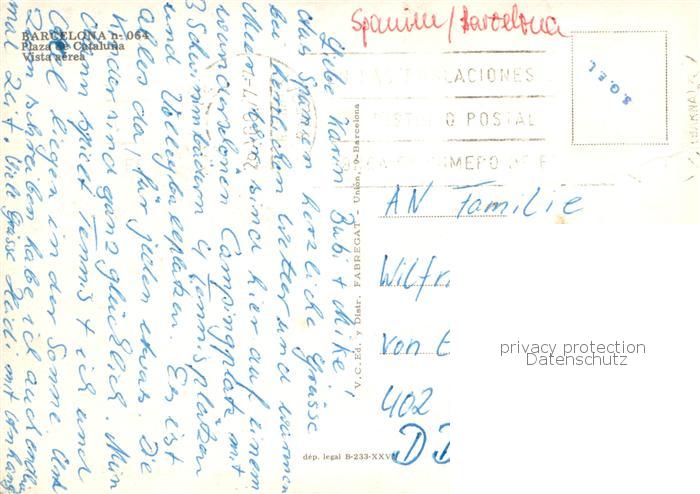 BARCELONA n.º 064
Plaza de Cataluña
Vista aérea
Spanien/Barcelona
S.G.E.L.
POBLACIONES
DISTRITO POSTAL
NUMERO DE
Liebe Karin, Bubi + Mike,
Aus Spanien herzliche Grüsse
bei herrlichem Wetter und warmem
Meer. Wir sind hier auf einem
wunderschönen Campingplatz mit
3 Schwimmbädern 4 Tennisplätzen
und Volleyballplätzen. Es ist
alles da, für jeden etwas. Die
Kinder sind ganz glücklich. Mein
Mann spielt Tennis + ich und
liegen in der Sonne. Und
zum schreiben habe ich auch endlich
mal Zeit. Viele Grüsse Heidi mit Anhang
V. C. Ed. y Distr. FABREGAT - Unión, 9-Barcelona
dép. legal B-233-XXV
AN Familie
Wilfr
von
402
privacy protection
Datenschutz